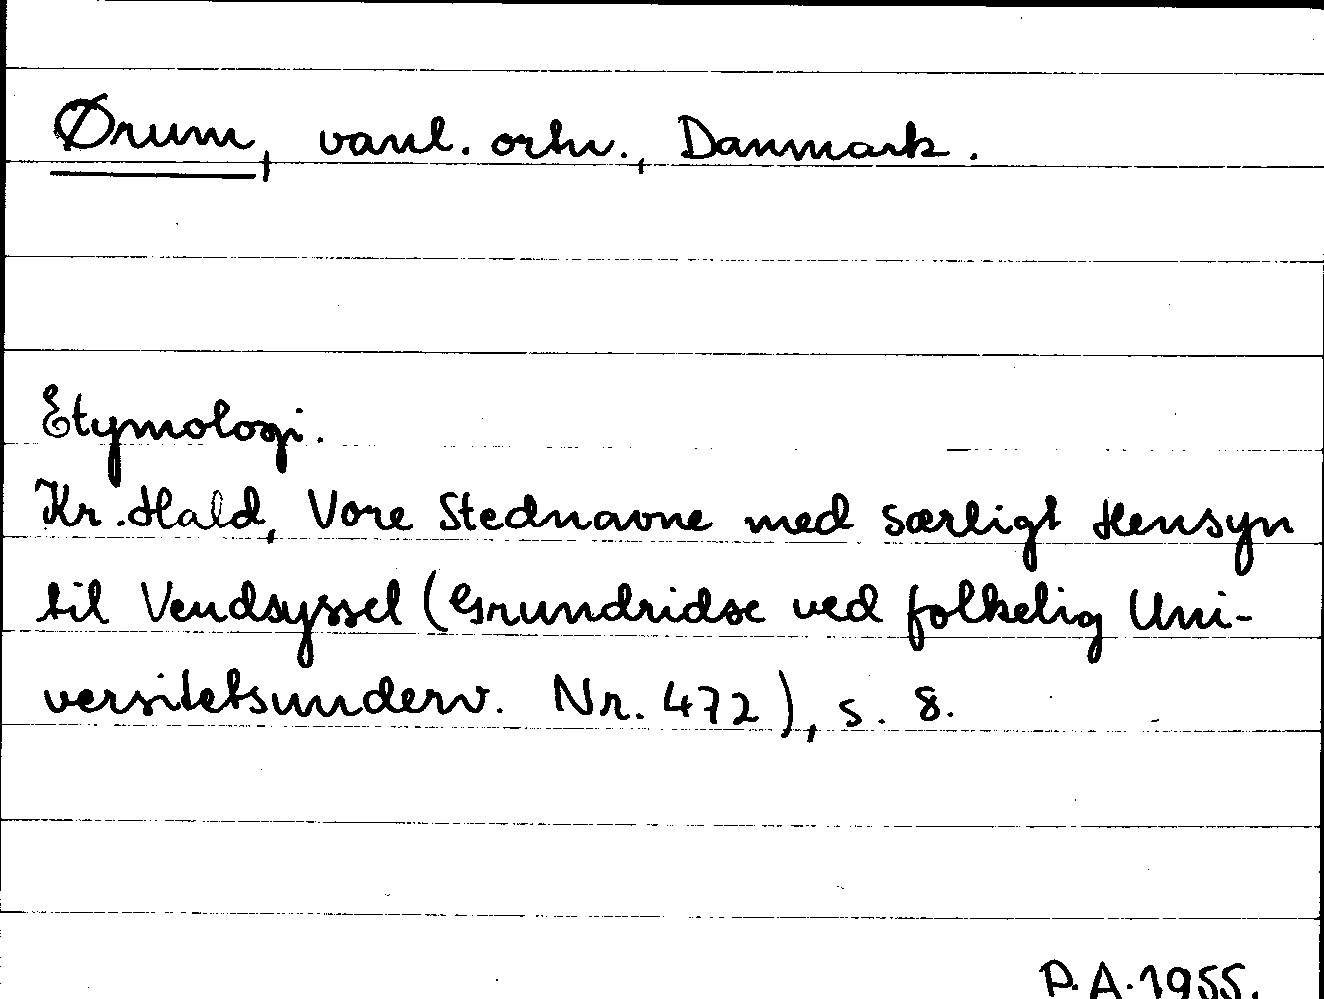 Ørum, vanl. ortn., Danmark.
Etymologi.
Kr. Hald, Vore Stednavne med særligt Hensyn
til Vendsyssel (Grundridse ved folkelig Uni-
versitetsunderv. Nr. 472), s. 8.
P.A. 1955.